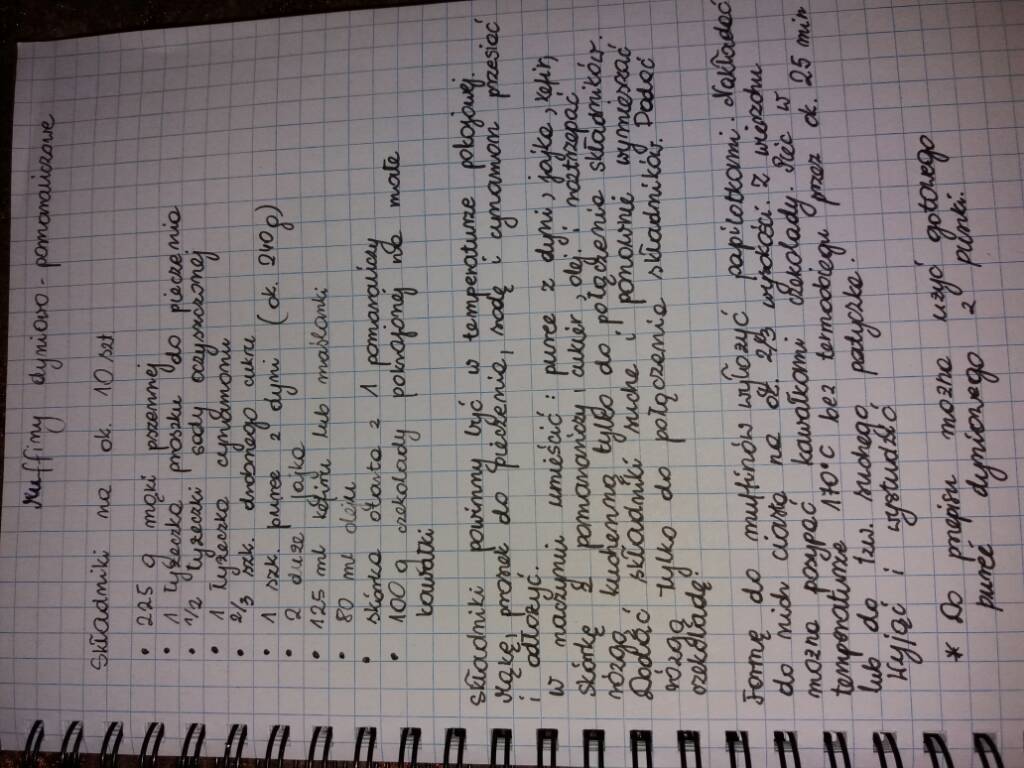 Muffiny dyniowo-pomarańczowe
Składniki na ok. 10 szt
• 225 g mąki pszennej
• 1 łyżeczka proszku do pieczenia
• 1/2 łyżeczki sody oczyszczonej
• 1 łyżeczka cynamonu
• 2/3 szk. drobnego cukru
• 1 szk. puree z dyni (ok. 240g)
• 2 duże jajka
• 125 ml kefiru lub maślanki
• 80 ml oleju
• skórka otarta z 1 pomarańczy
• 100 g czekolady pokrojonej na małe
kawałki
Składniki powinny być w temperaturze pokojowej.
Mąkę, proszek do pieczenia, sodę i cynamon przesiać
i odłożyć.
W naczyniu umieścić: puree z dyni, jajka, kefir,
skórkę z pomarańczy, cukier, olej i roztrzepać
rózgą kuchenną tylko do połączenia składników.
Dodać składniki suche i ponownie wymieszać
rózgą tylko do połączenia składników. Dodać
czekoladę!
Formę do muffinów wyłożyć papilotkami. Nakładać
do nich ciasto na ok. 2/3 wysokości. Z wierzchu
można posypać kawałkami czekolady. Piec w
temperaturze 170°C bez termoobiegu przez ok. 25 min
lub do tzw. suchego patyczka!
Wyjąć i wystudzić
* Do przepisu można użyć gotowego
pureé dyniowego z puszki.